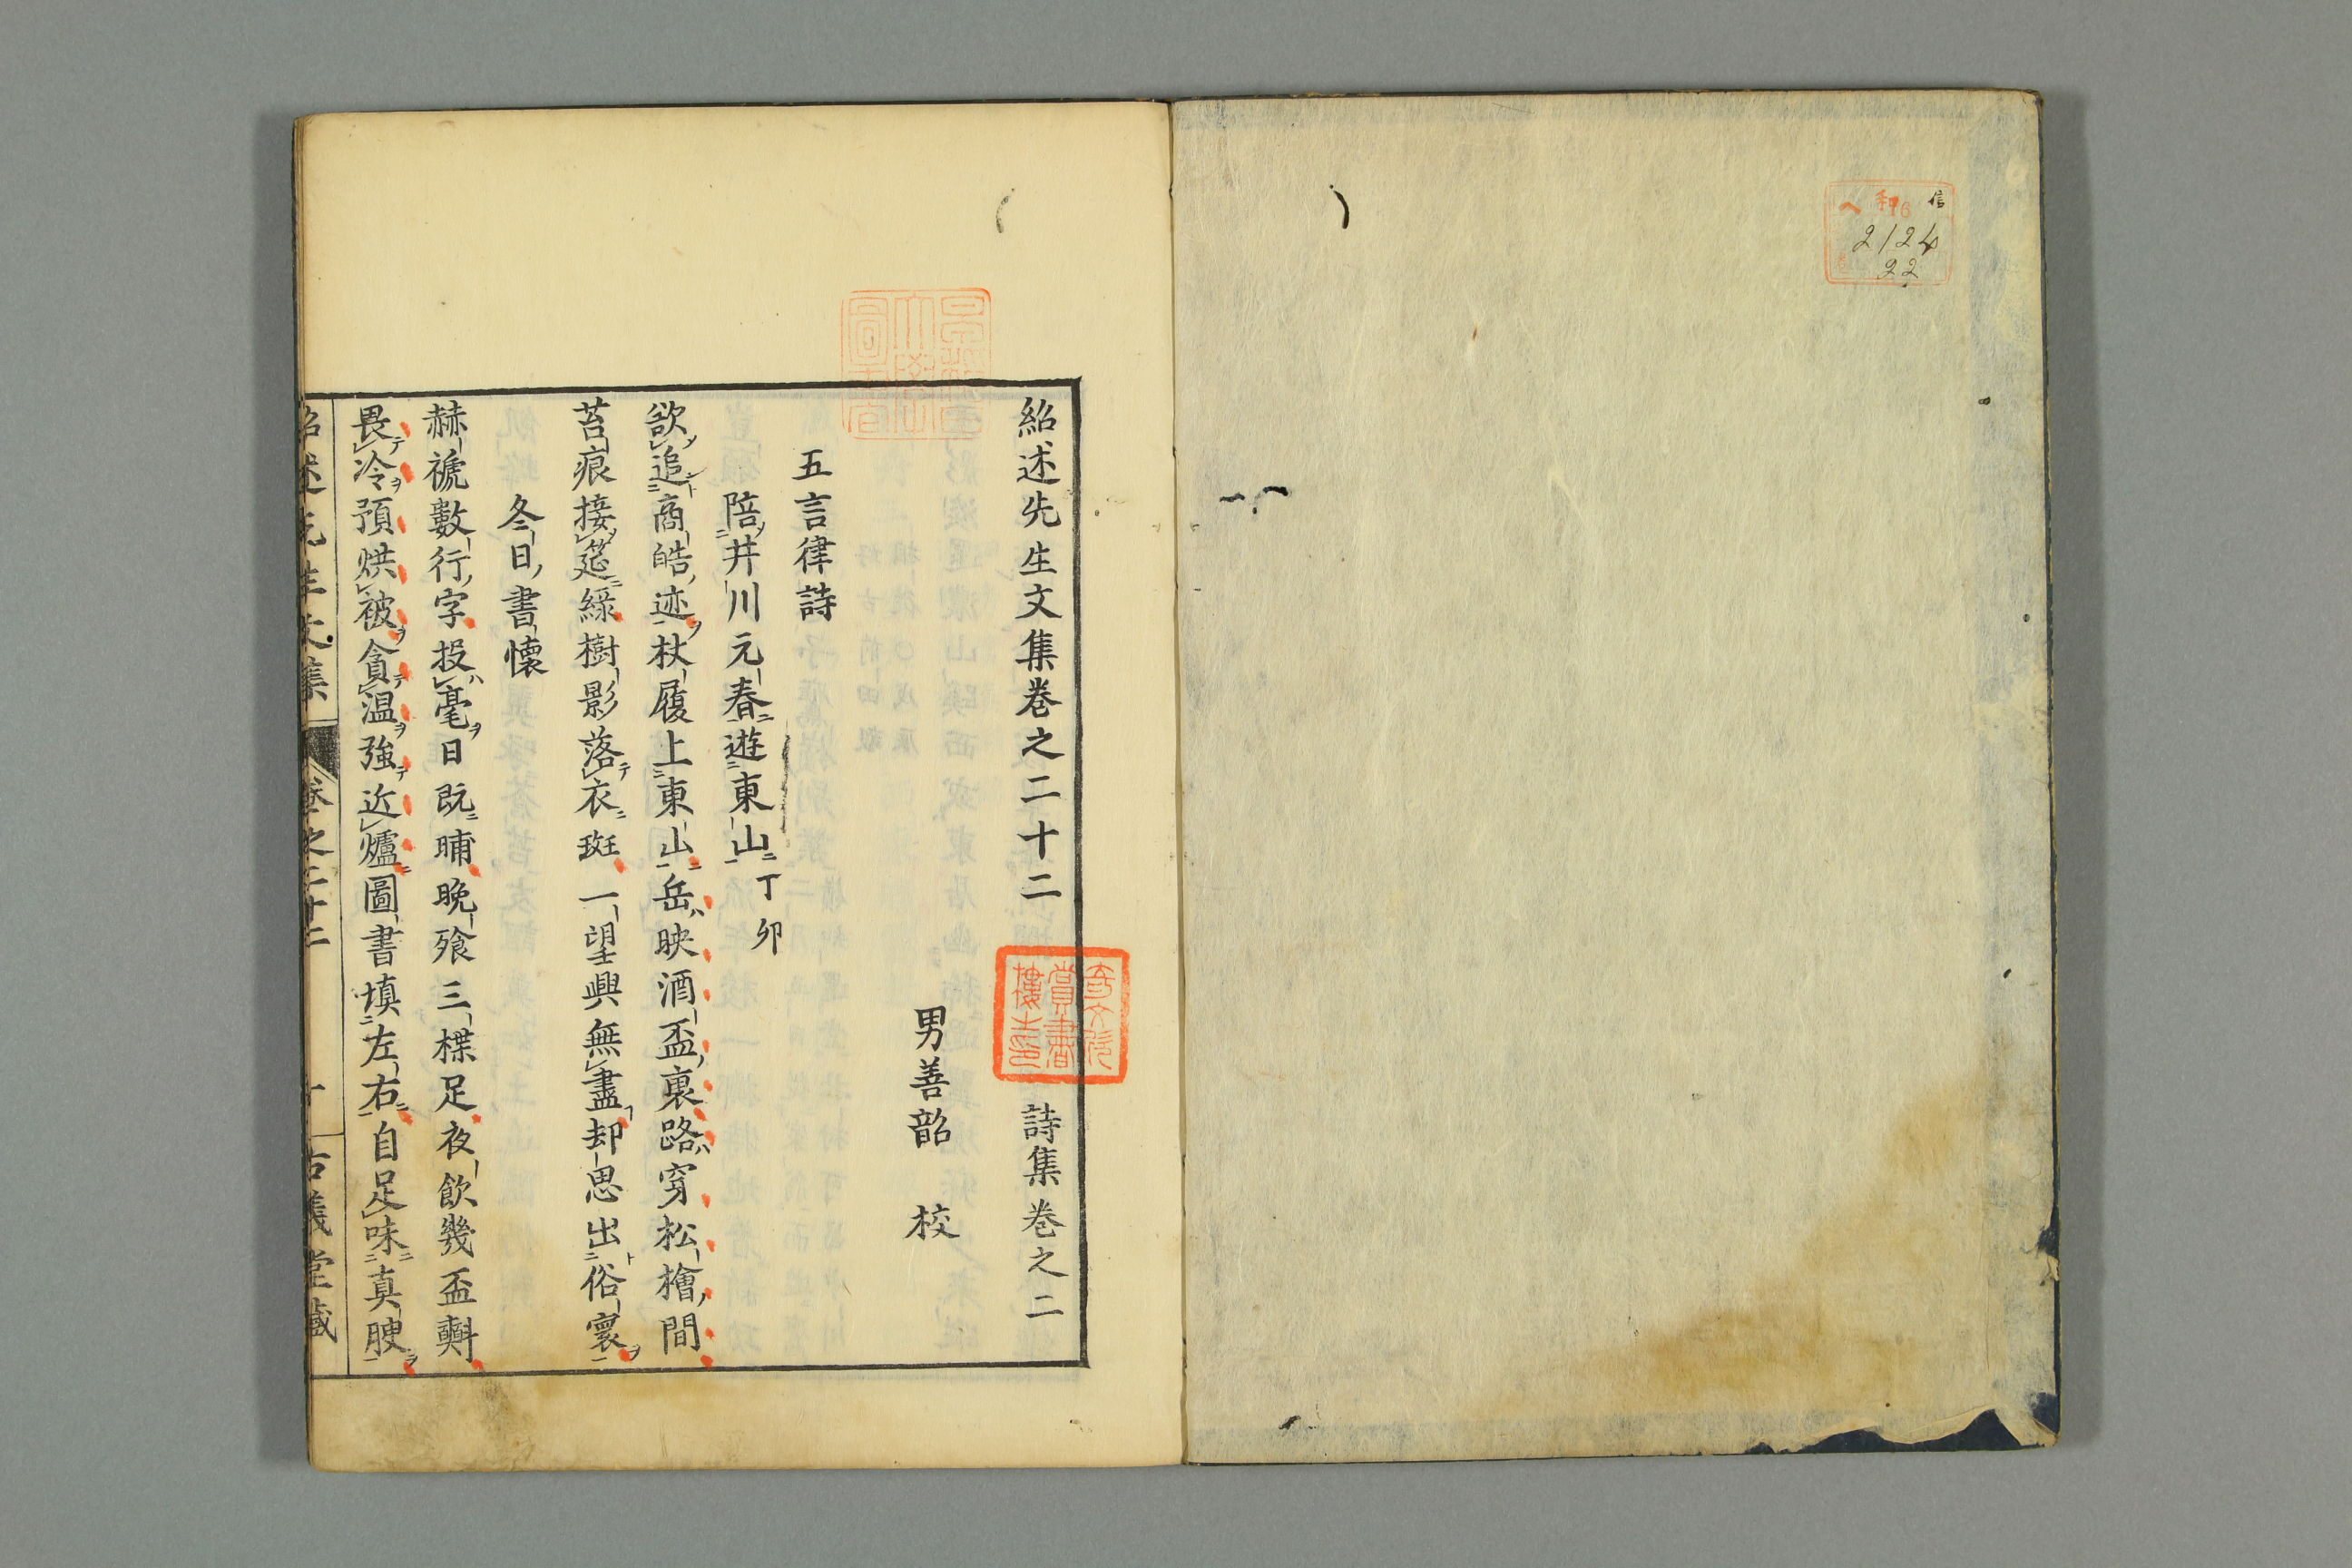 信
ヘ 和 16
2124
22
紹述先生文集巻之二十二 詩集巻之二
奇文欣
賞書
樓圭印
男善韶 校
五言律詩
陪井川元春遊東山丁卯
欲追商皓迹杖履上東山岳映酒盃裏路穿松檜間
苔痕接筵綠樹影落衣斑一望興無盡却思出俗寰
冬日書懷
赫蹏數行字投毫日既晡晩飱三楪足夜飲幾盃𣂏
畏冷預烘被貪温強近爐圖書填左右自足味真腴
紹述先生文集 巻之二十二 一 古義堂藏